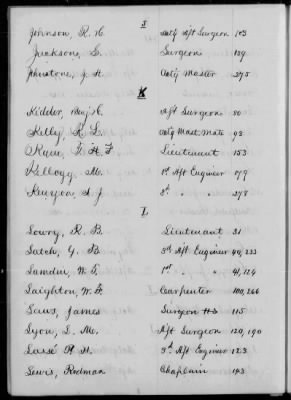 J
Johnson, R. H. Actg Asst Surgeon 103
Jackson, S. Surgeon 129
Johnstone, J. H. Actg Master 275
K
Kidder, Benj. H. Asst Surgeon 80
Kelly, R. L. Actg Mast. Mate 93
F. H. Lieutenant 153
Kellogg, M. 1st Asst Engineer 179
Kenyon A. J. " " 278
L
Lowry, R. B. Lieutenant 31
Latch, G. B. 3d Asst Engineer 233
Lamdin, W. F. 1st " " 41, 124
Laighton, W. F. Carpenter 100, 266
James Surgeon 115
Lyon, L. M. Asst Surgeon 120, 190
R. H. 3d Asst Engineer 123
Lewis, Rodman Chaplain 143